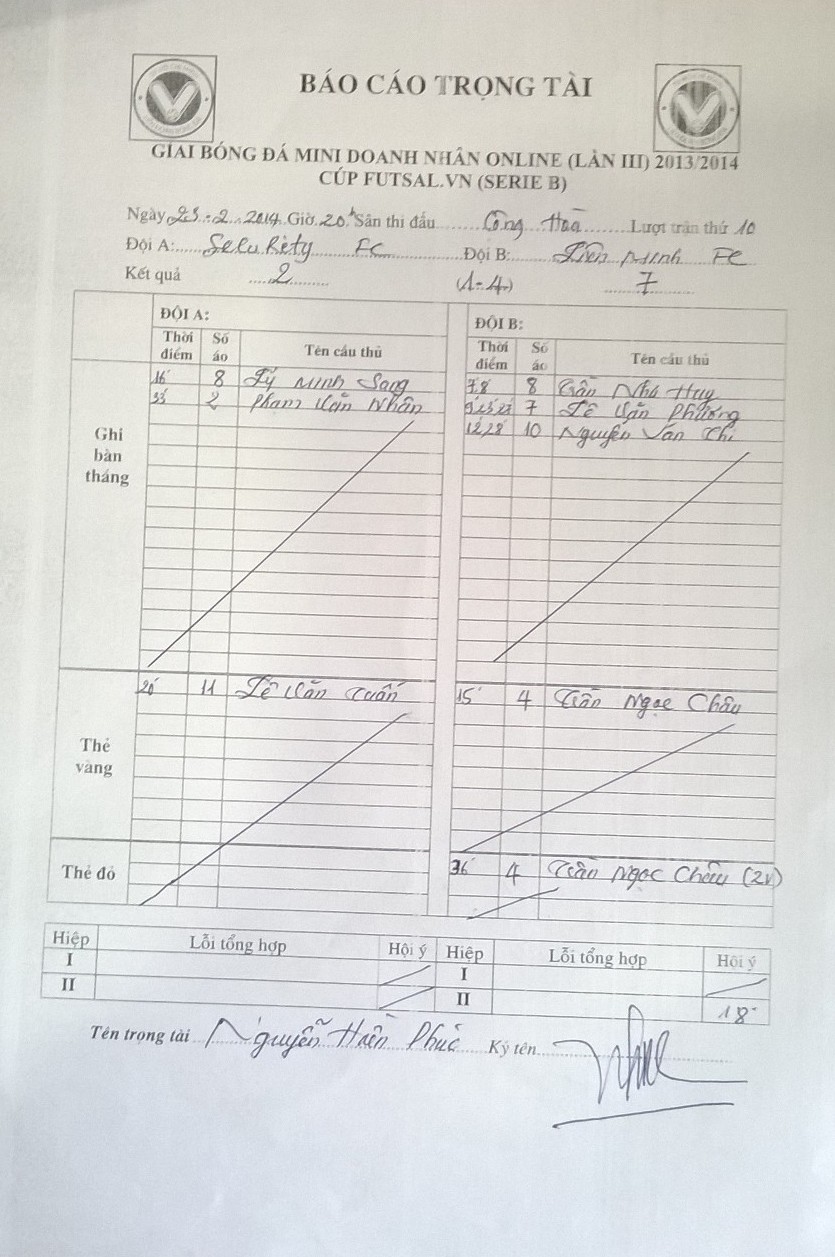 BÁO CÁO TRỌNG TÀI
GIẢI BÓNG ĐÁ MINI DOANH NHÂN ONLINE (LẦN III) 2013/2014
CÚP FUTSAL.VN (SERIE B)
Ngày 23-2-2014 Giờ 20h Sân thi đấu Cộng Hoà Lượt trận thứ 10
Đội A: Selu Rety FC Đội B: Liên Minh FC
Kết quả 2 (1-4) 7
ĐỘI A: ĐỘI B:
Thời điểm Số áo Tên cầu thủ Thời điểm Số áo Tên cầu thủ
Ghi bàn thắng
16' 8 Lý Minh Sang 7,8 8 Trần Như Huy
33' 2 Phạm Văn Nhân 7 Lê Văn Phương
12,28 10 Nguyễn Văn Chi
Thẻ vàng
20' 11 Lê Văn Tuấn 15' 4 Trần Ngọc Châu
Thẻ đỏ
36' 4 Trần Ngọc Châu (2v)
Hiệp Lỗi tổng hợp Hội ý Hiệp Lỗi tổng hợp Hội ý
I I
II II 18'
Tên trọng tài Nguyễn Hiền Phúc Ký tên